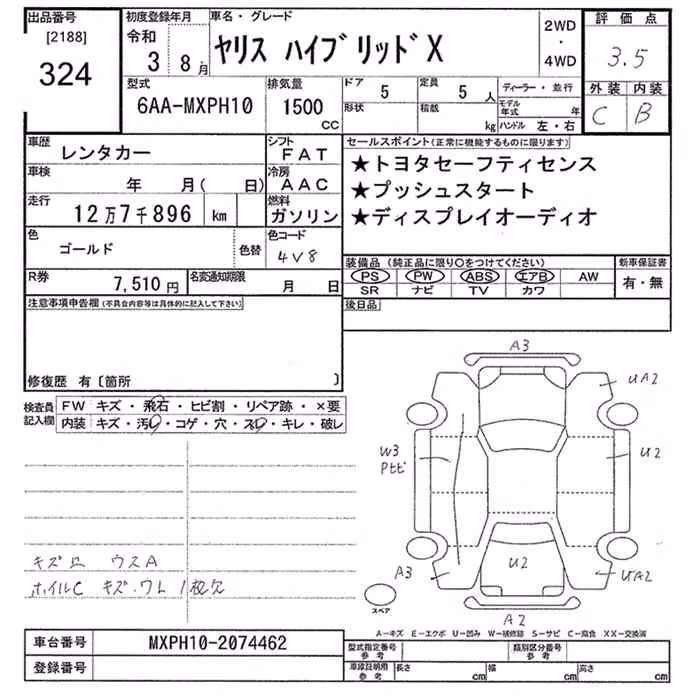 出品番号
[2188]
324
初度登録年月
令和
3 8 月
車名・グレード
ヤリス ハイブリッドX
2WD
・
4WD
評価点
3.5
外装 内装
C B
型式
6AA-MXPH10
排気量
1500
cc
ドア 5
形状
定員 5 人
積載 kg
ディーラー・並行
モデル年式 年
ハンドル 左・右
車歴
レンタカー
シフト
FAT
車検
年 月( 日)
冷房
AAC
走行
12万7千896 km
燃料
ガソリン
色
ゴールド
色替
色コード
4V8
R券
7,510 円
名変通知期限
月 日
セールスポイント(正常に機能するものに限ります)
★トヨタセーフティセンス
★プッシュスタート
★ディスプレイオーディオ
装備品 (純正品に限り○をつけてください)
新車保証書
PS PW ABS エアB AW
SR ナビ TV カワ
有・無
後日品
注意事項申告欄(不具合内容等は具体的に記入して下さい)
修復歴 有〔箇所 〕
検査員
記入欄
FW キズ・飛石・ヒビ割・リペア跡・×要
内装 キズ・汚れ・コゲ・穴・スレ・キレ・破レ
A3
UA2
W3
U2
A3
U2
UA2
スペア
A2
キズ凹 ウスA
ホイルC キズ・ワレ 1枚欠
A-キズ E-エクボ U-凹み W-補修跡 S-サビ C-腐食 XX-交換済
車台番号
MXPH10-2074462
登録番号
型式指定番号
参考
類別区分番号
参考
車庫証明用
参考
長さ cm
幅 cm
高さ cm